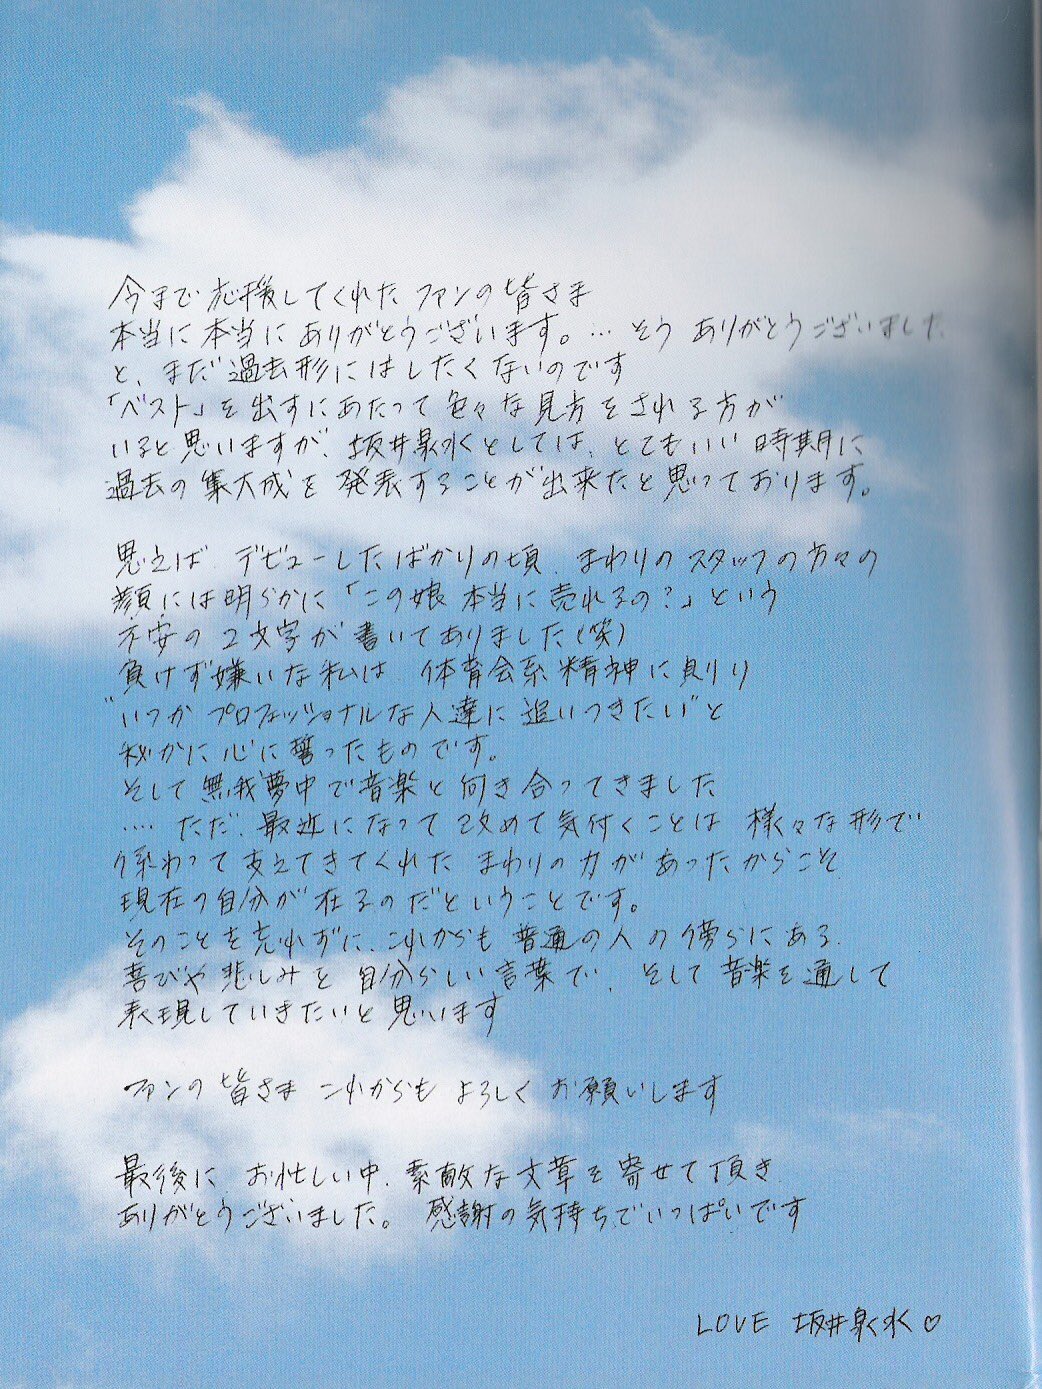 今まで応援してくれた ファンの皆さま
本当に本当にありがとうございます。… そう ありがとうございました
と、まだ過去形にはしたくないのです
「ベスト」を出すにあたって色々な見方をされる方が
いると思いますが、坂井泉水としては、とてもいい時期に
過去の集大成を発表することが出来たと思っております。
思えば、デビューしたばかりの頃、まわりのスタッフの方々の
顔には明らかに「この娘本当に売れるの?」という
不安の2文字が書いてありました(笑)
負けず嫌いな私は 体育会系精神に則り
"いつか プロフェッショナルな人達に追いつきたい"と
秘かに心に誓ったものです。
そして無我夢中で音楽と向き合ってきました
‥‥ ただ、最近になって改めて気付くことは 様々な形で
係わって支えてきてくれた まわりの力があったからこそ
現在の自分が在るのだということです。
そのことを忘れずに、これからも普通の人の傍らにある、
喜びや悲しみを自分らしい言葉で、そして音楽を通して
表現していきたいと思います
ファンの皆さま これからも よろしく お願いします
最後に、お忙しい中、素敵な文章を寄せて頂き、
ありがとうございました。 感謝の気持ちでいっぱいです
LOVE 坂井泉水♡